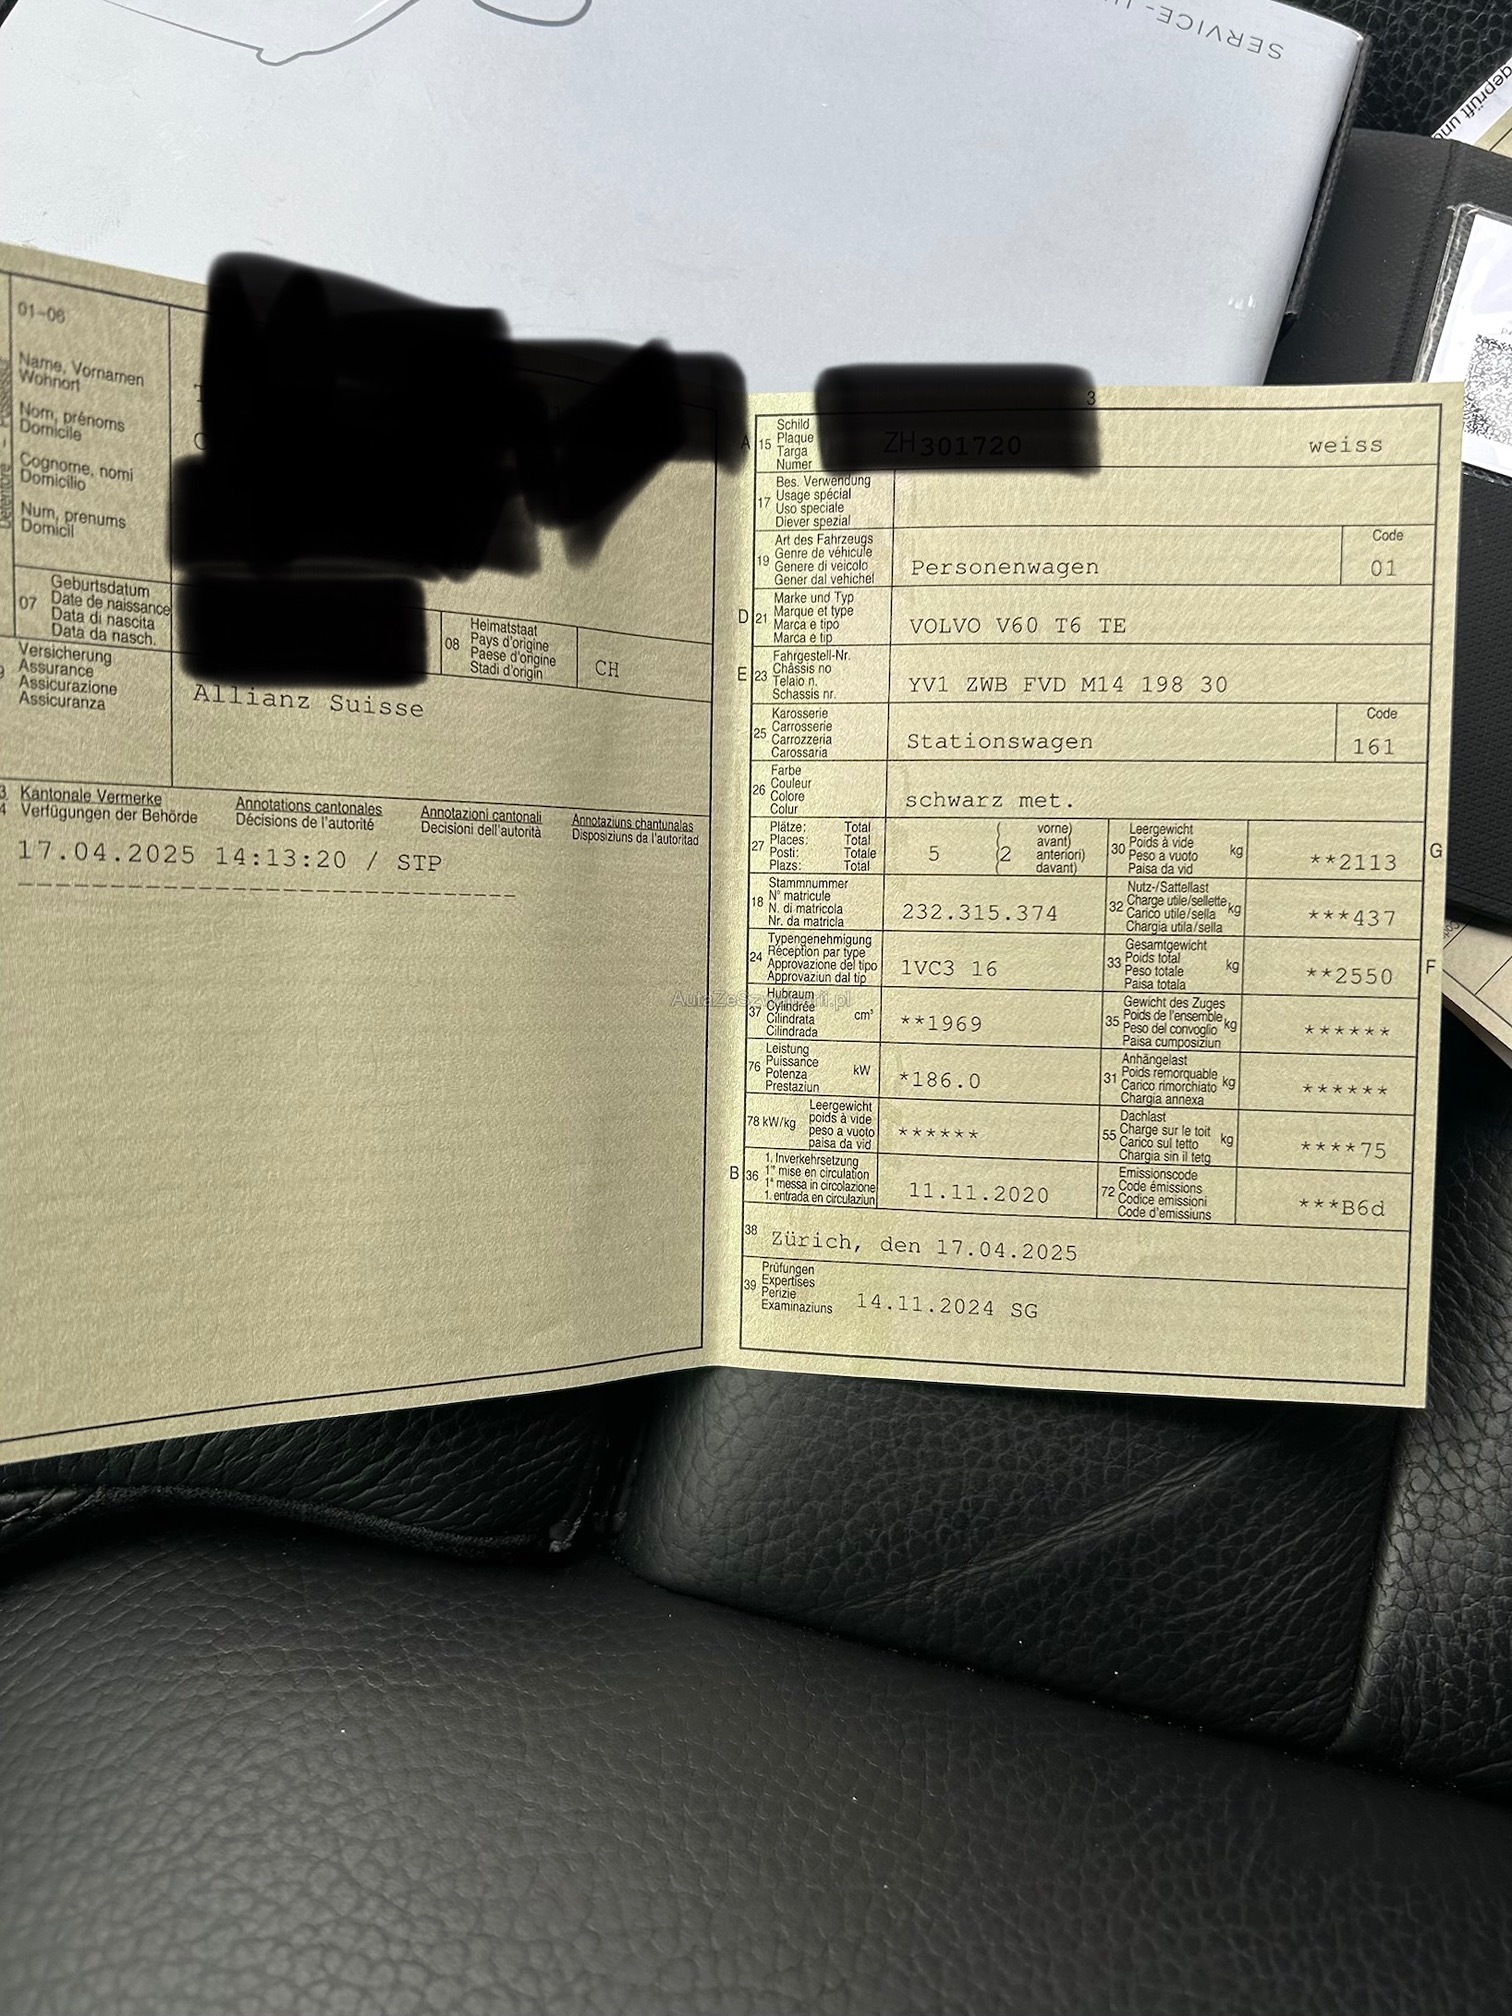 SERVICE-
geprüft und
01-06
Name, Vornamen
Wohnort
Nom, prénoms
Domicile
Cognome, nomi
Domicilio
Num, prenums
Domicil
07 Geburtsdatum
Date de naissance
Data di nascita
Data da nasch.
08 Heimatstaat
Pays d'origine
Paese d'origine
Stadi d'origin
CH
Versicherung
Assurance
Assicurazione
Assicuranza
Allianz Suisse
Kantonale Vermerke
Verfügungen der Behörde
Annotations cantonales
Décisions de l'autorité
Annotazioni cantonali
Decisioni dell'autorità
Annotaziuns chantunalas
Disposiziuns da l'autoritad
17.04.2025 14:13:20 / STP
3
A 15 Schild
Plaque
Targa
Numer
ZH301720 weiss
17 Bes. Verwendung
Usage spécial
Uso speciale
Diever spezial
19 Art des Fahrzeugs
Genre de véhicule
Genere di veicolo
Gener dal vehichel
Personenwagen
Code
01
D 21 Marke und Typ
Marque et type
Marca e tipo
Marca e tip
VOLVO V60 T6 TE
E 23 Fahrgestell-Nr.
Châssis no
Telaio n.
Schassis nr.
YV1 ZWB FVD M14 198 30
25 Karosserie
Carrosserie
Carrozzeria
Carossaria
Stationswagen
Code
161
26 Farbe
Couleur
Colore
Colur
schwarz met.
27 Plätze: Total
Places: Total
Posti: Totale
Plazs: Total
5 (2 vorne)
avant)
anteriori)
davant)
30 Leergewicht
Poids à vide
Peso a vuoto
Paisa da vid
kg
**2113 G
18 Stammnummer
N° matricule
N. di matricola
Nr. da matricla
232.315.374
32 Nutz-/Sattellast
Charge utile/sellette
Carico utile/sella
Chargia utila/sella
kg
***437
24 Typengenehmigung
Réception par type
Approvazione del tipo
Approvaziun dal tip
1VC3 16
33 Gesamtgewicht
Poids total
Peso totale
Paisa totala
kg
**2550 F
37 Hubraum
Cylindrée
Cilindrata
Cilindrada
cm³
**1969
35 Gewicht des Zuges
Poids de l'ensemble
Peso del convoglio
Paisa cumposiziun
kg
******
76 Leistung
Puissance
Potenza
Prestaziun
kW
*186.0
31 Anhängelast
Poids remorquable
Carico rimorchiato
Chargia annexa
kg
******
78 kW/kg Leergewicht
poids à vide
peso a vuoto
paisa da vid
******
55 Dachlast
Charge sur le toit
Carico sul tetto
Chargia sin il tetg
kg
****75
B 36 1. Inverkehrsetzung
1re mise en circulation
1a messa in circolazione
1. entrada en circulaziun
11.11.2020
72 Emissionscode
Code émissions
Codice emissioni
Code d'emissiuns
***B6d
38 Zürich, den 17.04.2025
39 Prüfungen
Expertises
Perizie
Examinaziuns
14.11.2024 SG